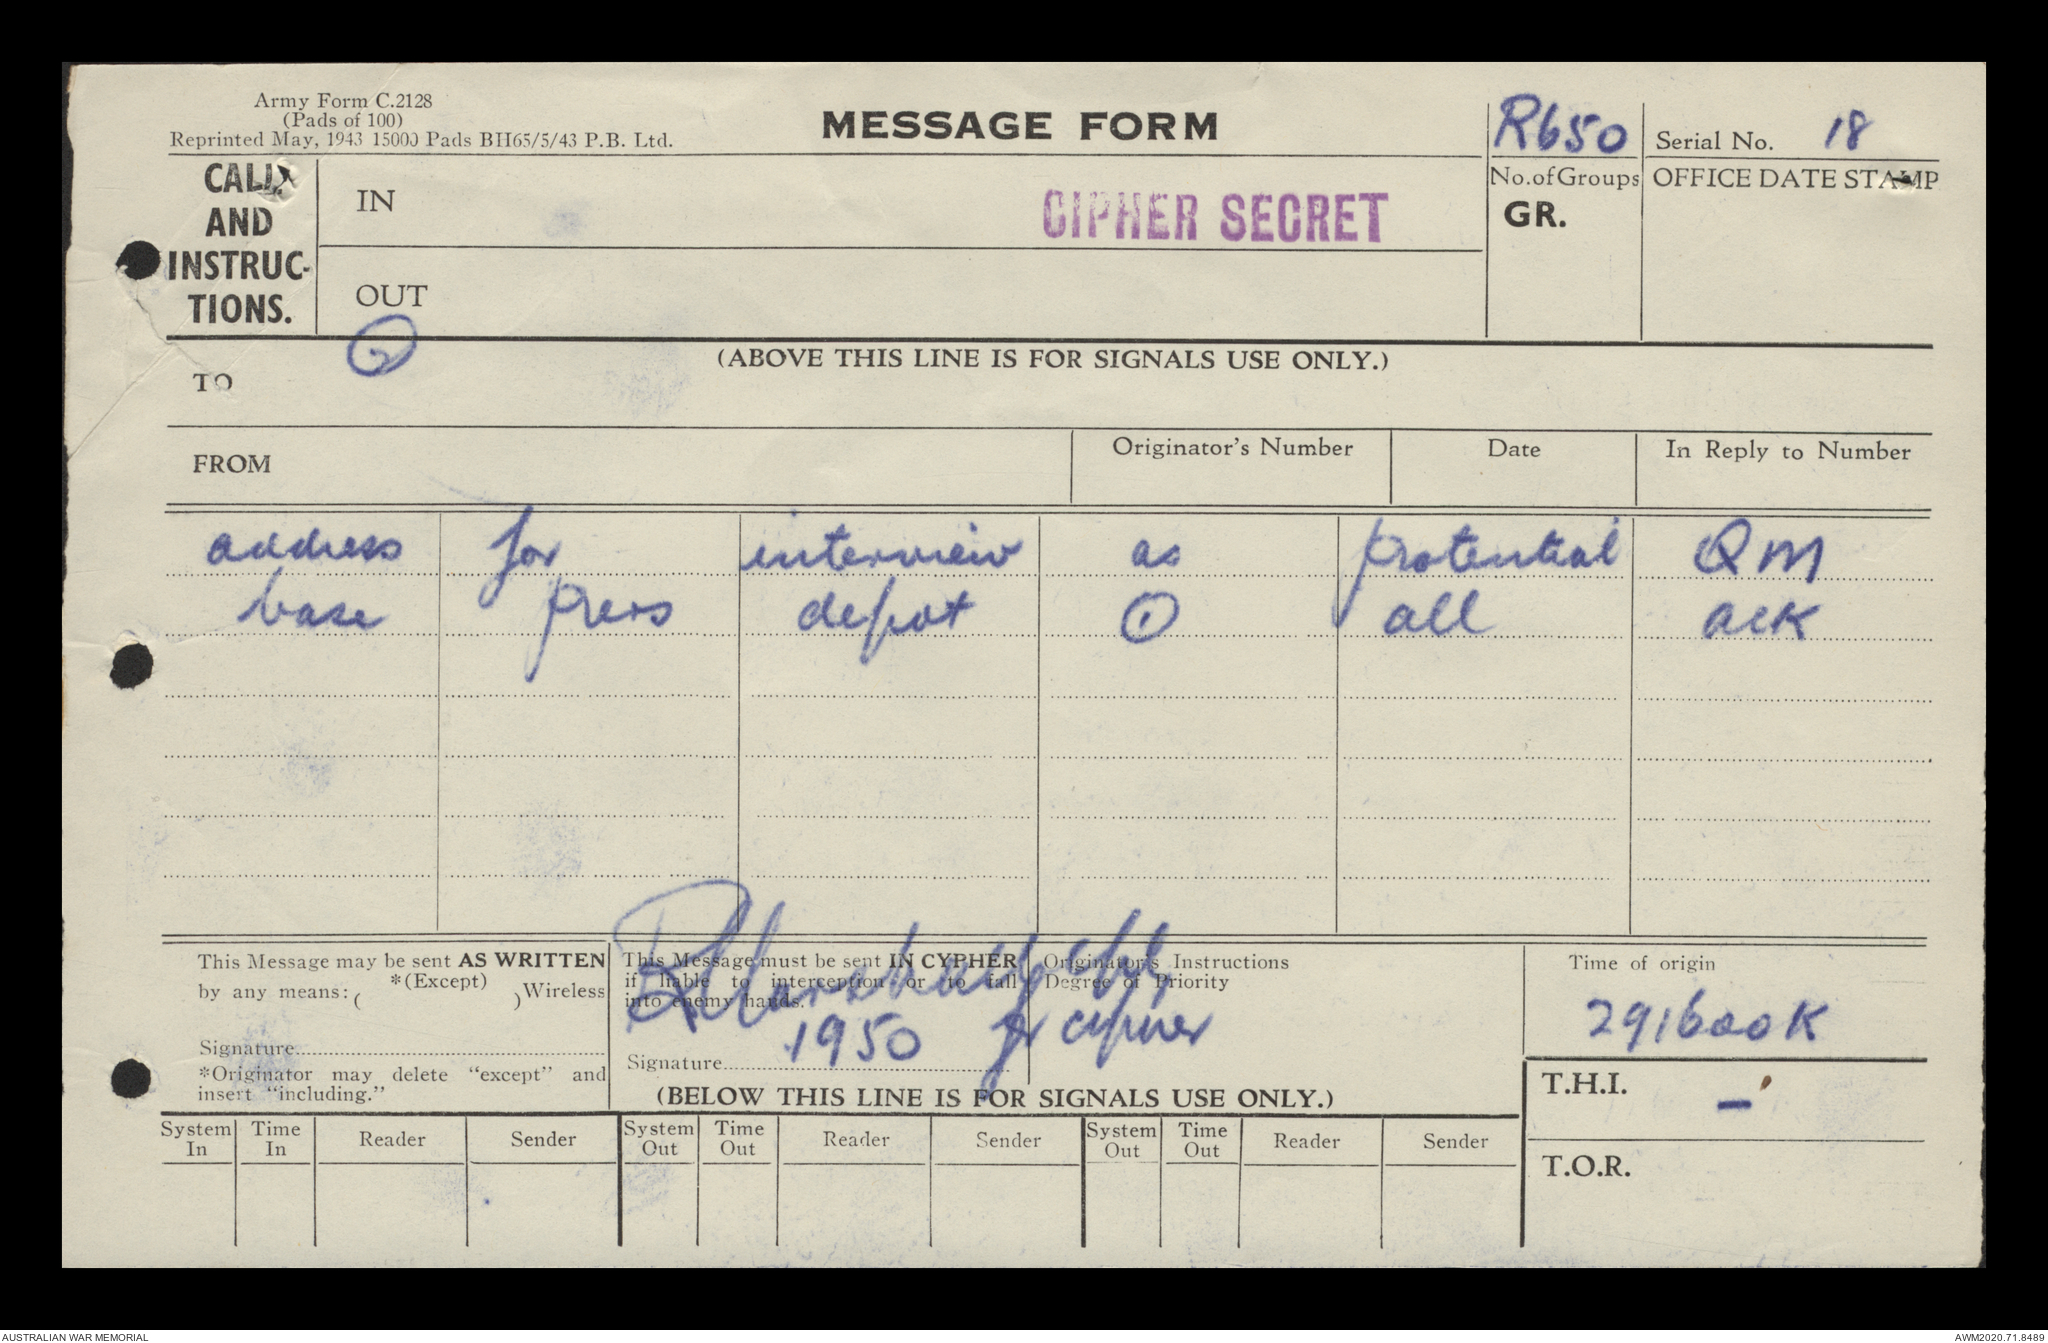 Army Form C.2128
(Pads of 100)
Reprinted May, 1943 15000 Pads BH65/5/43 P.B. Ltd.
MESSAGE FORM
R650
Serial No. 18
CALL
AND
INSTRUC-
TIONS.
IN
CIPHER SECRET
No. of Groups
GR.
OFFICE DATE STAMP
OUT
2
(ABOVE THIS LINE IS FOR SIGNALS USE ONLY.)
TO
FROM
Originator's Number
Date
In Reply to Number
address for interview as protential QM
base pers depot (.) all ack
This Message may be sent AS WRITTEN
by any means: ( *(Except) ) Wireless
Signature
*Originator may delete "except" and
insert "including."
This Message must be sent IN CYPHER
if liable to interception or to fall
into enemy hands.
1950
Signature
Originator's Instructions
Degree of Priority
for cipher
Time of origin
291600K
(BELOW THIS LINE IS FOR SIGNALS USE ONLY.)
T.H.I. –
T.O.R.
System In
Time In
Reader
Sender
System Out
Time Out
Reader
Sender
System Out
Time Out
Reader
Sender
AUSTRALIAN WAR MEMORIAL
AWM2020.71.8489